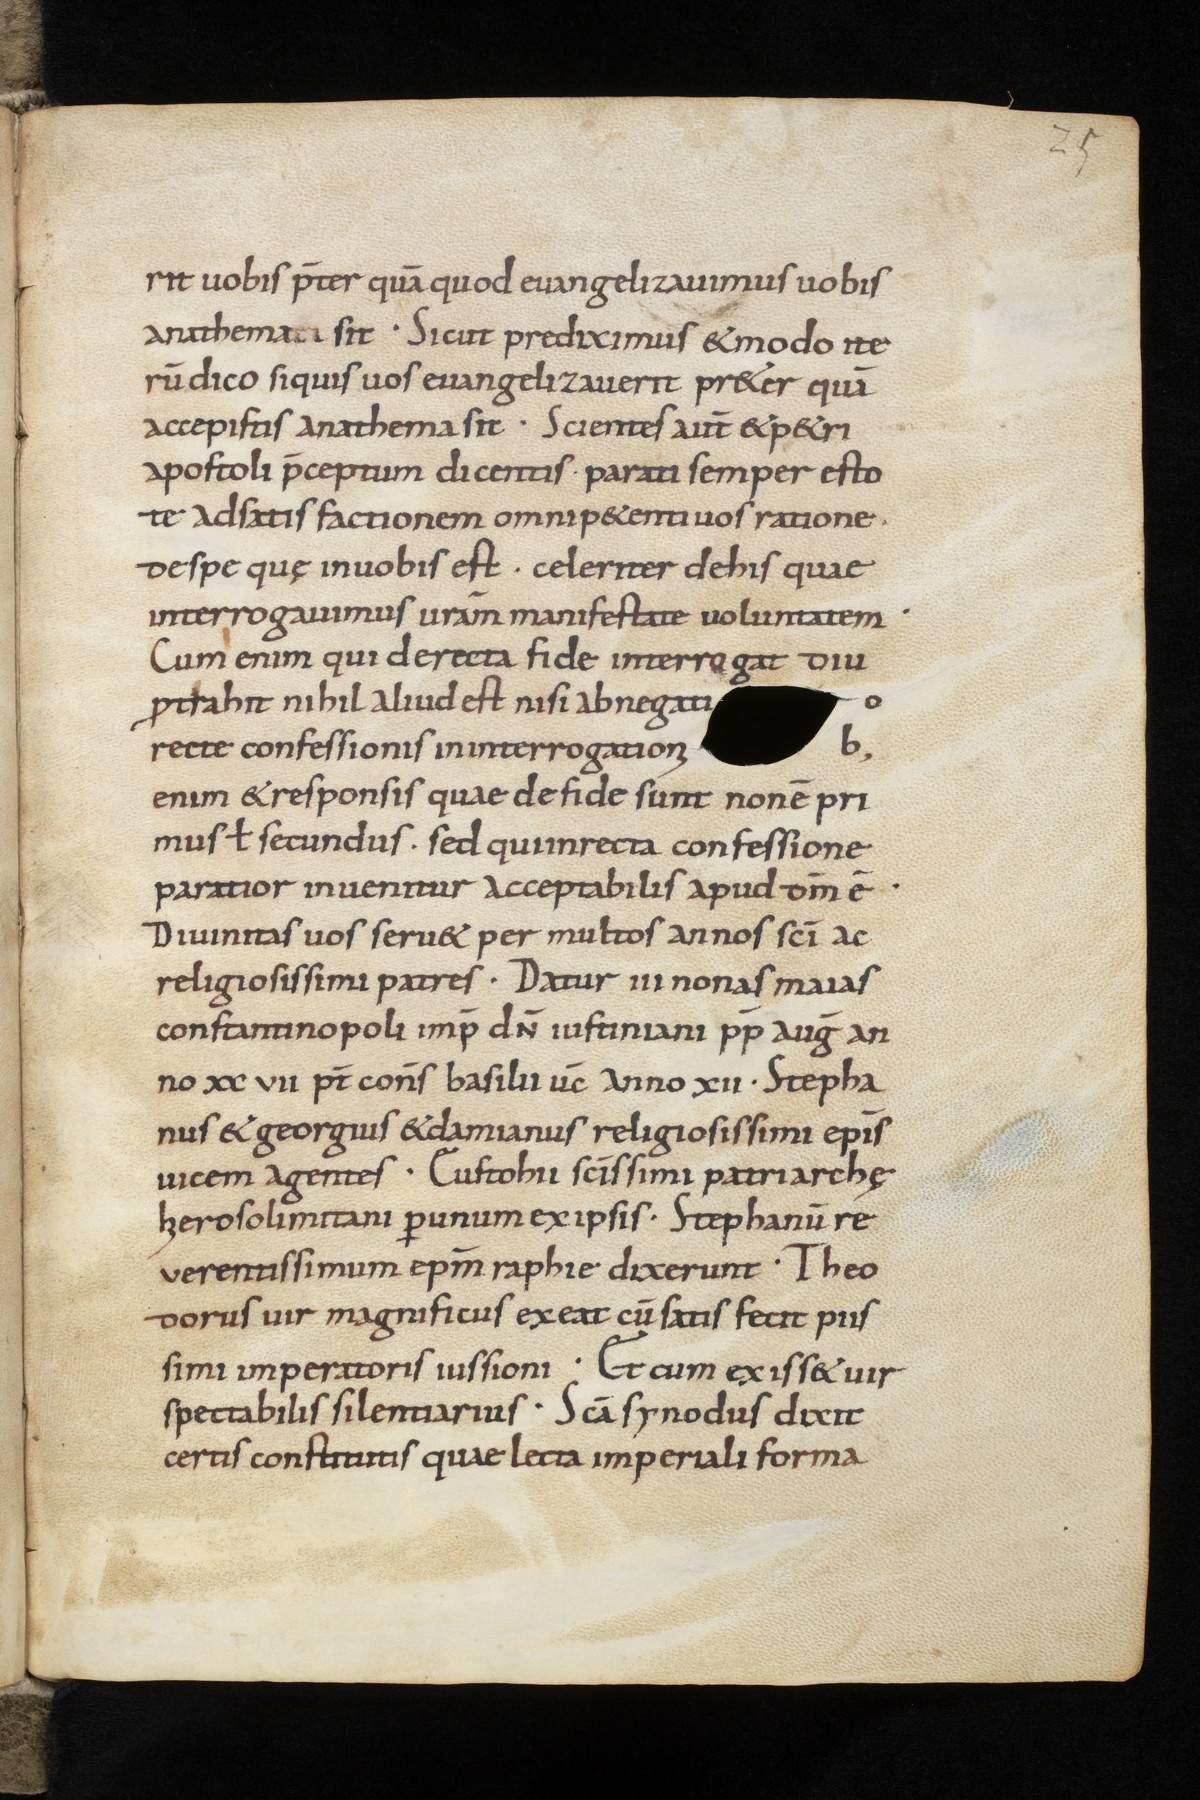 25
rit uobis p̄ter quā quod euangelizauimus uobis
anathemati sit · Sicut prediximus &modo ite
rū dico siquis uos euangelizauerit pr&er quā
accepistis anathema sit · Scientes aut̄ &p&ri
apostoli p̄ceptum dicentis · parati semper esto
te adsatisfactionem omnip&enti uos ratione ·
despe quę inuobis est · celeriter dehis quae
interrogauimus ur̄am manifestate uoluntatem ·
Cum enim qui derecta fide interrogat diu
ꝓtrahit nihil aliud est nisi abnegati o
recte confessionis ininterrogationꝫ b;
enim &responsis quae defide sunt non ē pri
mus ł secundus · sed quiinrecta confessione
paratior inuenitur acceptabilis apud dm̄ ē ·
Diuinitas uos seru& per multos annos sci̅ ac
religiosissimi patres · Datur iii nonas maias
constantinopoli imp̄ dn̄ iustiniani p̄p̄ aug̅ an
no xx vii pt̄ con̄s basilii uc̄ anno xii · Stepha
nus &georgius &damianus religiosissimi epi̅s
uicem agentes · Eustohii sci̅ssimi patriarchę
hierosolimitani ꝑunum ex ipsis · Stephanū re
verentissimum epm̄ raphie dixerunt · Theo
dorus uir magnificus exeat cū satis fecit piis
simi imperatoris iussioni · Et cum exiss& uir
spectabilis silentiarius · Scā synodus dixit
certis constitutis quae lecta imperiali forma